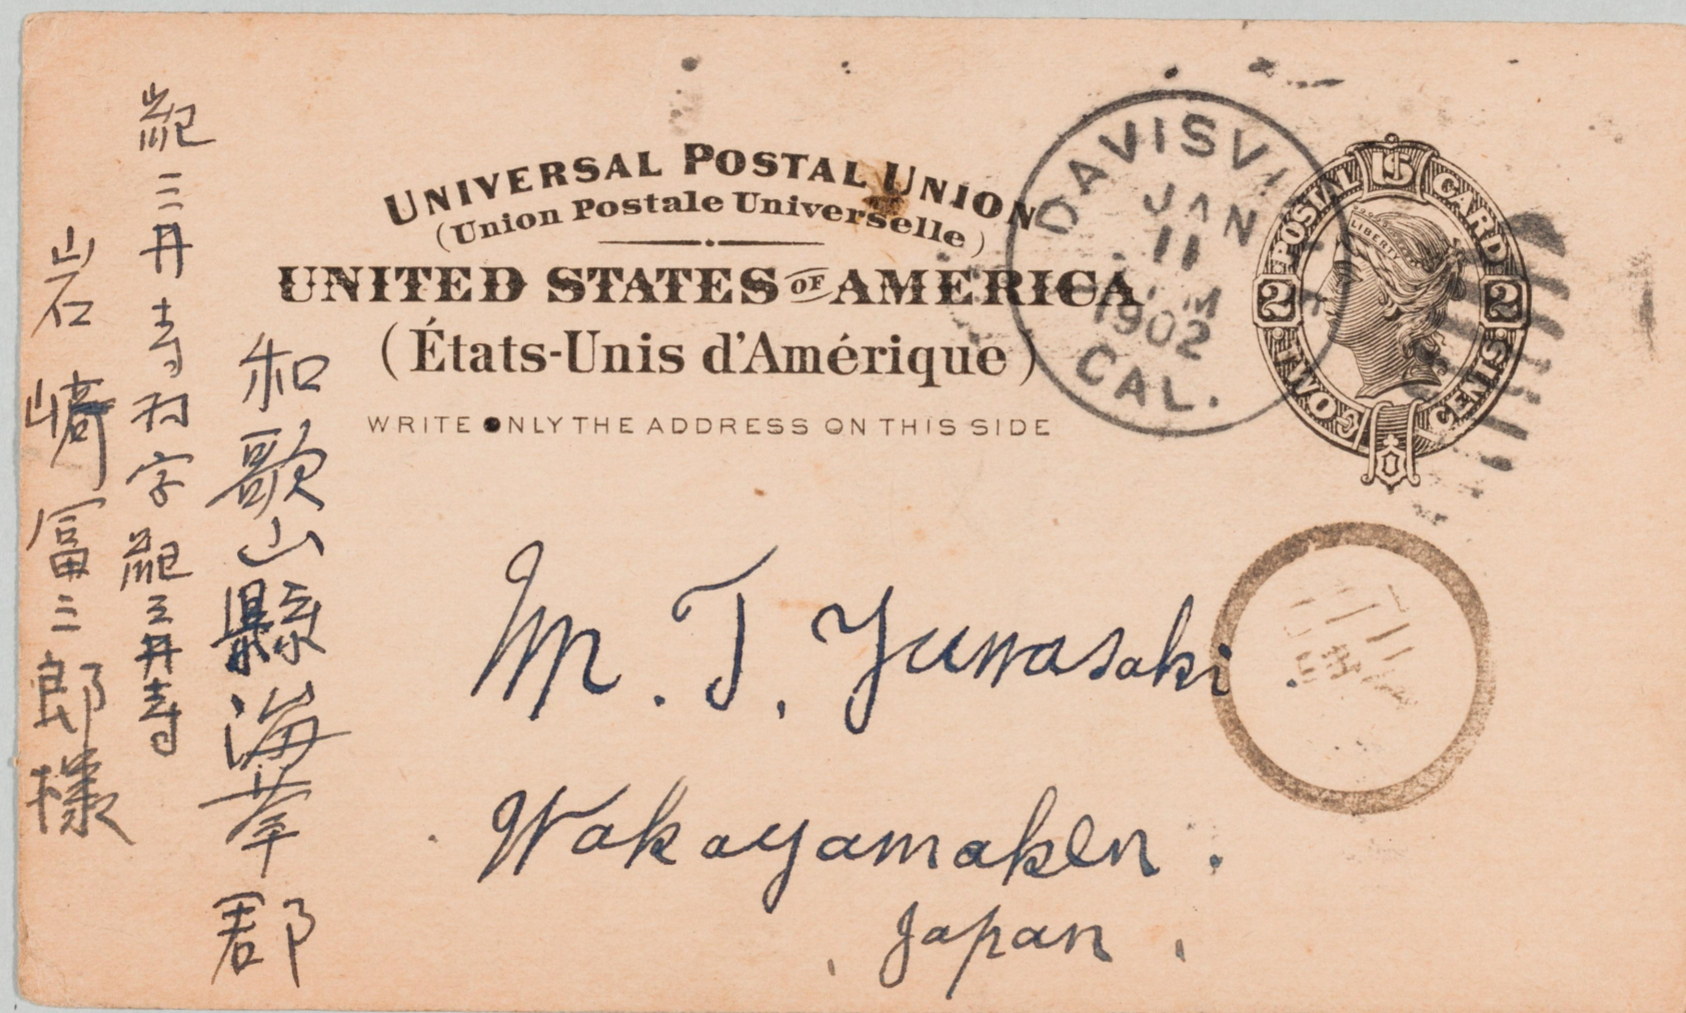 UNIVERSAL POSTAL UNION
(Union Postale Universelle)
UNITED STATES OF AMERICA
(États-Unis d'Amérique)
WRITE ONLY THE ADDRESS ON THIS SIDE
DAVISVI
JAN
11
M
1902
CAL.
POSTAL CARD
U.S
LIBERTY
2 2
TWO CENTS
Mr. T. Yuwasaki
Wakayamaken.
Japan.
和歌山縣海草郡
紀三井寺村字紀三井寺
岩﨑冨三郎様